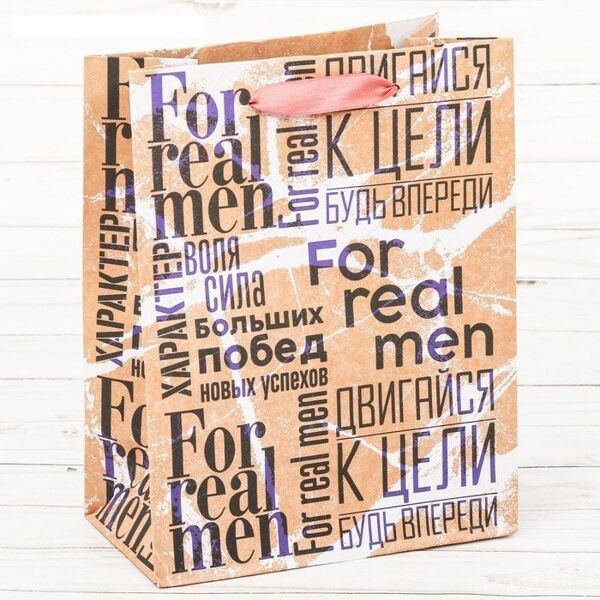 For
real
men.
For real
ДВИГАЙСЯ
К ЦЕЛИ
БУДЬ ВПЕРЕДИ
ХАРАКТЕР
ВОЛЯ
СИЛА
Больших
побед
новых успехов
For
real
men
For
real
men.
For real men
ДВИГАЙСЯ
К ЦЕЛИ
БУДЬ ВПЕРЕДИ
For
real
men.
ХАРАКТЕР
For
real
men.